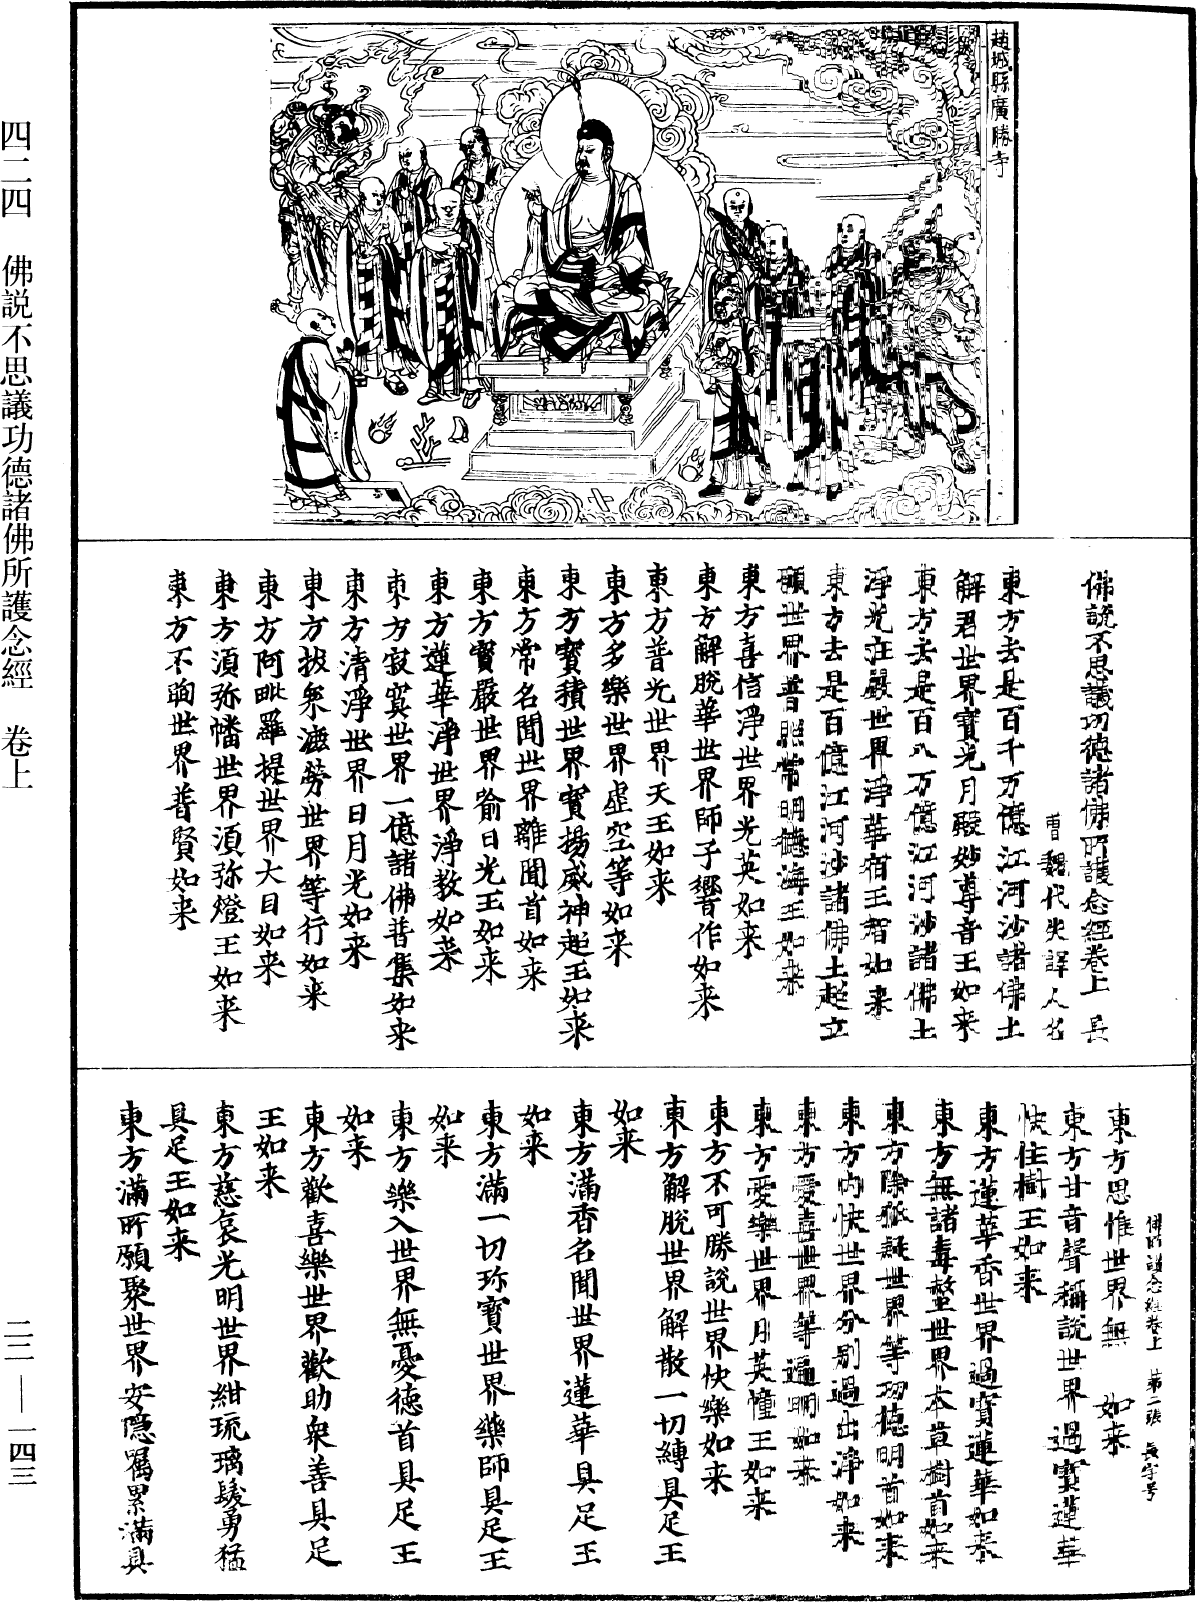 四二四　佛説不思議功德諸佛所護念經　卷上
二二—一四三
趙城縣廣勝寺
佛說不思議功德諸佛所護念經卷上　長
曹魏代失譯人名
東方去是百千万億江河沙諸佛土
解君世界寶光月殿妙尊音王如来
東方去是百八万億江河沙諸佛土
淨光庄嚴世界淨華宿王智如来
東方去是百億江河沙諸佛土超立
願世界普照常明德海王如来
東方喜信淨世界光英如来
東方解脫華世界師子響作如来
東方普光世界天王如来
東方多樂世界虛空等如来
東方寶積世界寶揚威神超王如来
東方常名聞世界離聞首如来
東方寶嚴世界踰日光王如来
東方蓮華淨世界淨教如来
東方寂寞世界一億諸佛普集如来
東方清淨世界日月光如来
東方拔衆塵勞世界等行如来
東方阿毗羅提世界大目如来
東方湏弥幡世界湏弥燈王如来
東方不眴世界普賢如来
佛所護念經卷上　第二張　長字号
東方思惟世界無　如来
東方甘音聲稱說世界過寶蓮華
快住樹王如来
東方蓮華香世界過寶蓮華如来
東方無諸毒螫世界本草樹首如来
東方除狐疑世界等功德明首如来
東方內快世界分別過出淨如来
東方愛喜世界等遍明如来
東方愛樂世界月英幢王如来
東方不可勝說世界快樂如来
東方解脫世界解散一切縛具足王
如来
東方滿香名聞世界蓮華具足王
如来
東方滿一切珎寶世界藥師具足王
如来
東方樂入世界無憂德首具足王
如来
東方歡喜樂世界歡助衆善具足
王如来
東方慈哀光明世界紺琉璃髮勇猛
具足王如来
東方滿所願聚世界安隱囑累滿具